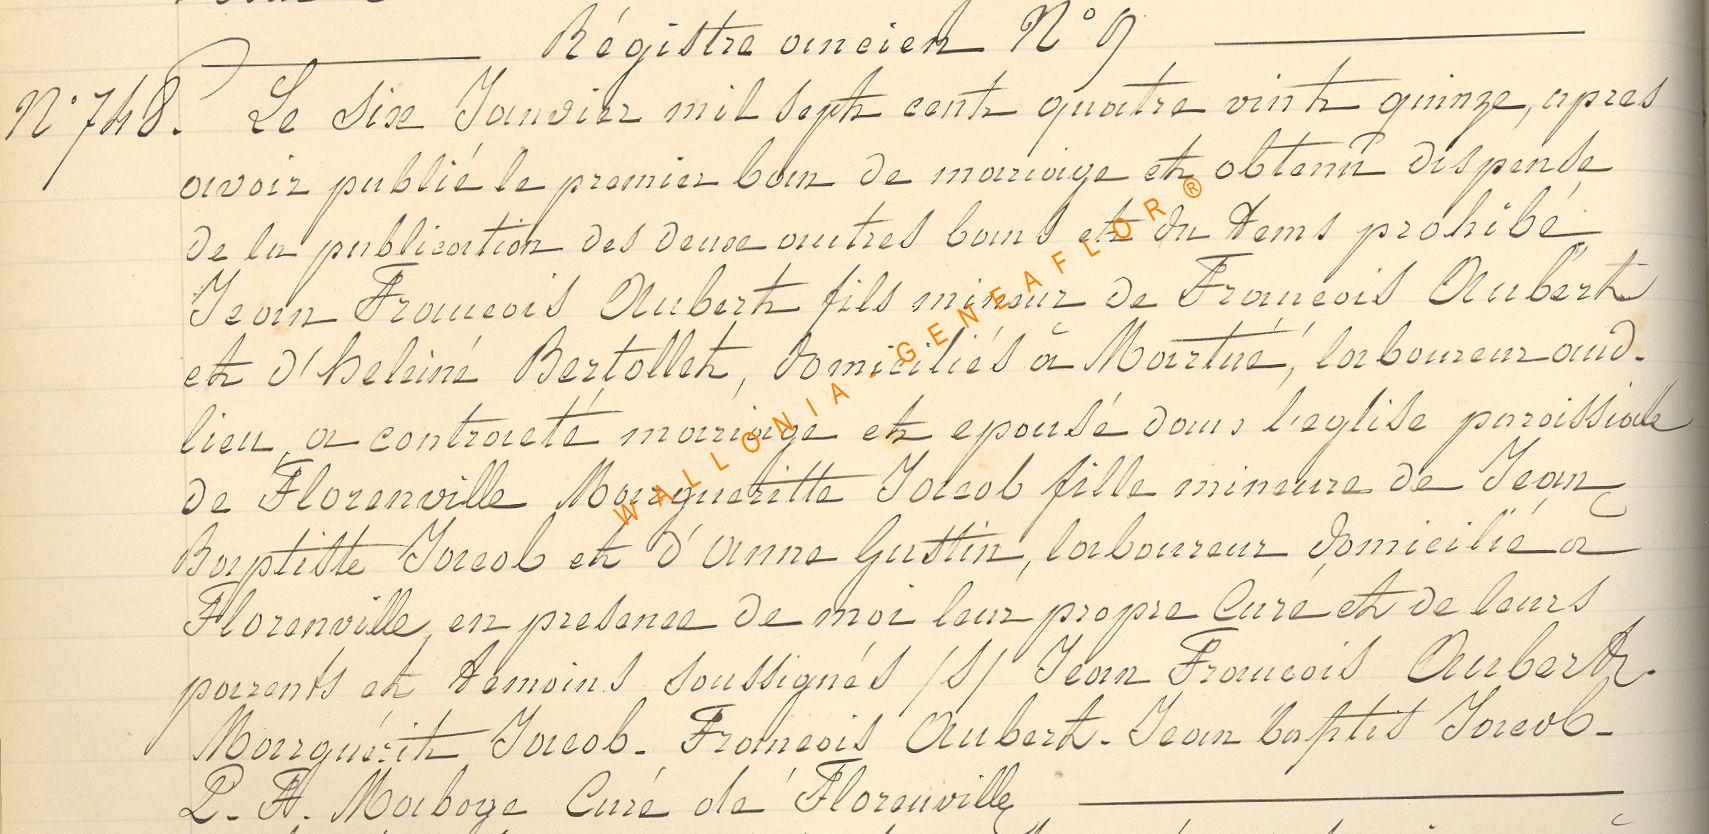 Régistre ancien N° 9
N° 748. Le six Janvier mil sept cent quatre vint quinze, apres
avoir publié le premier ban de mariage et obtenu dispense
de la publication des deux autres bans et du tems prohibé
Jean François Aubert fils mineur de François Aubert
et d'heleiné Bertollet, domiciliés à Martué, laboureur aud.
lieu, a contracté mariage et epousé dans l'eglise paroissiale
de Florenville Margueritte Jacob fille mineure de Jean
Baptiste Jacob et d'Anne Gustin, laboureur domicilié à
Florenville, en presence de moi leur propre Curé et de leurs
parents et temoins soussignés /s/ Jean François Aubert.
Marguérit Jacob - François Aubert - Jean baptis Jacob -
P. H. Maboge Curé de Florenville
WALLONIA - GENEAFLOR®